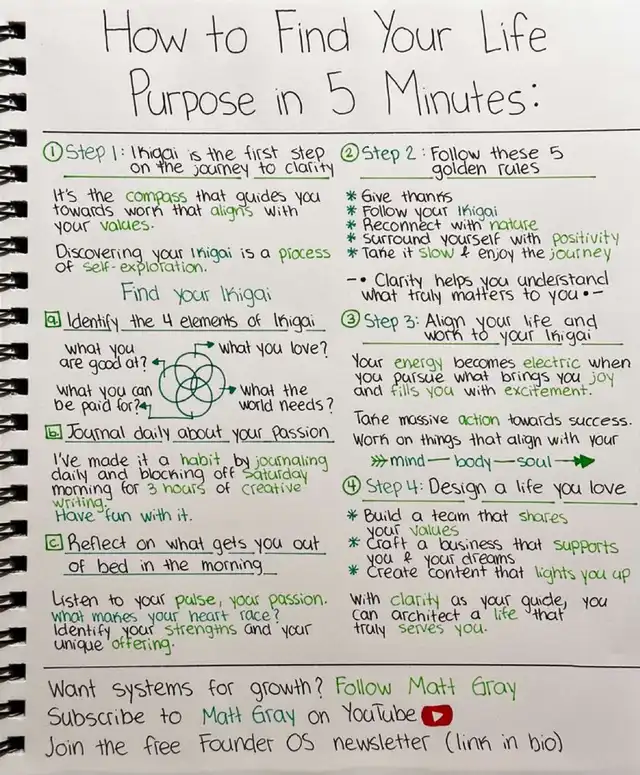 How to Find Your Life
Purpose in 5 Minutes:
① Step 1: Ikigai is the first step
on the journey to clarity
It's the compass that guides you
towards work that aligns with
your values.
Discovering your Ikigai is a process
of self-exploration.
Find your Ikigai
a Identify the 4 elements of Ikigai
what you
are good at?
what you love?
what you can
be paid for?
what the
world needs?
b Journal daily about your passion
I've made it a habit by journaling
daily and blocking off Saturday
morning for 3 hours of creative
writing.
Have fun with it.
c Reflect on what gets you out
of bed in the morning
Listen to your pulse, your passion.
What makes your heart race?
Identify your strengths and your
unique offering.
② Step 2: Follow these 5
golden rules
* Give thanks
* Follow your Ikigai
* Reconnect with nature
* Surround yourself with positivity
* Take it slow & enjoy the journey
-• Clarity helps you understand
what truly matters to you •-
③ Step 3: Align your life and
work to your Ikigai
Your energy becomes electric when
you pursue what brings you joy
and fills you with excitement.
Take massive action towards success.
Work on things that align with your
mind — body — soul
④ Step 4: Design a life you love
* Build a team that shares
your values
* Craft a business that supports
you & your dreams
* Create content that lights you up
With clarity as your guide, you
can architect a life that
truly serves you.
Want systems for growth? Follow Matt Gray
Subscribe to Matt Gray on YouTube
Join the free Founder OS newsletter (link in bio)